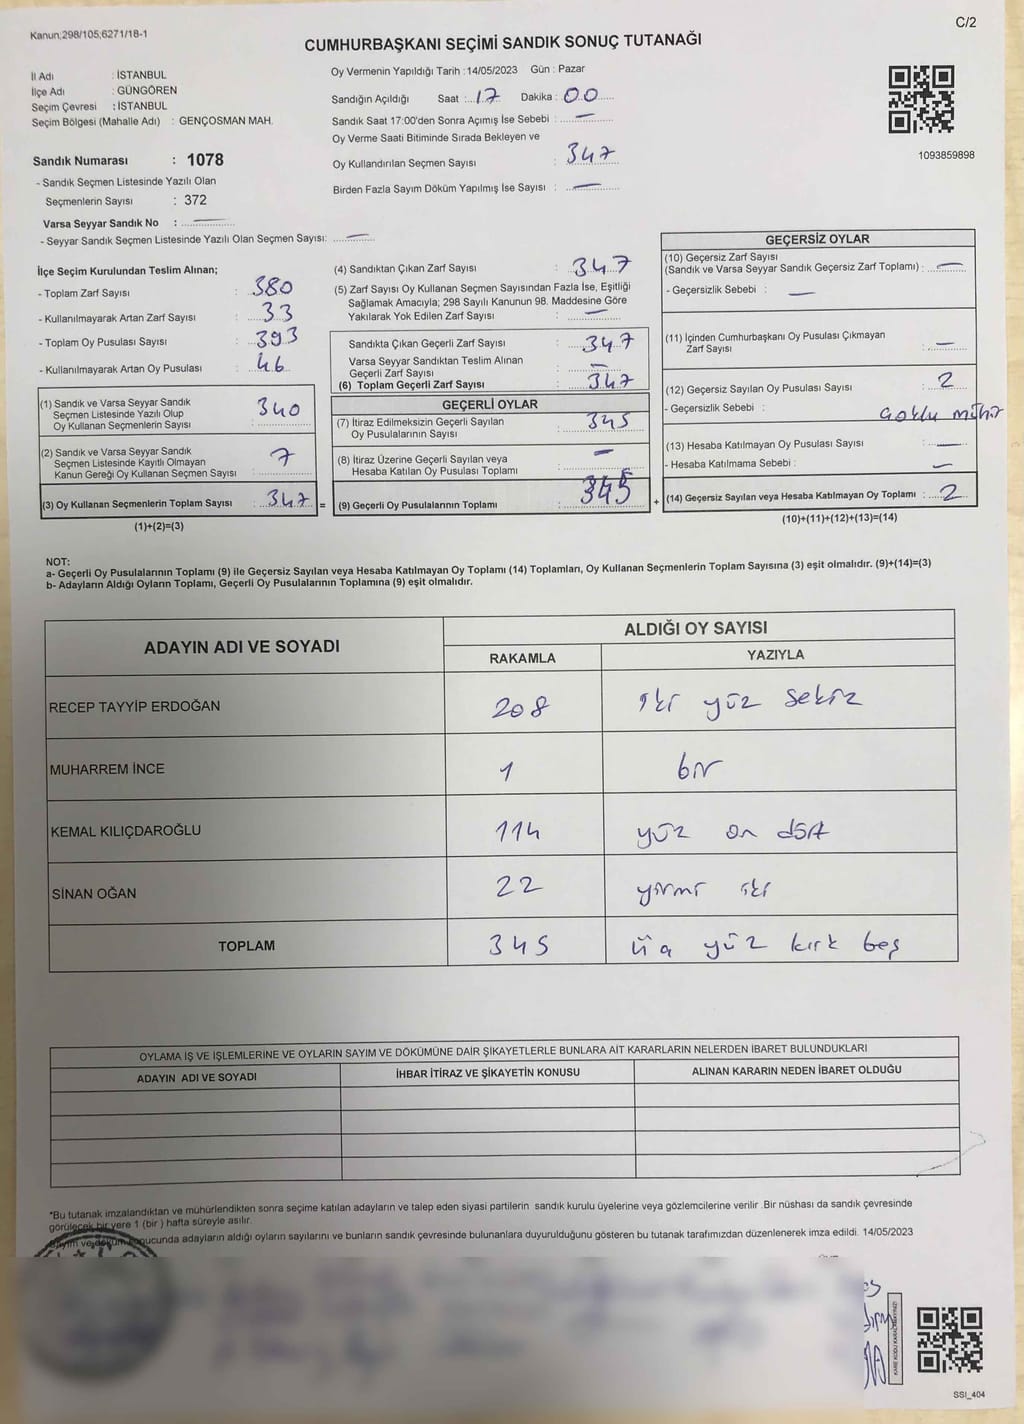 Kanun:298/105;6271/18-1
C/2
CUMHURBAŞKANI SEÇİMİ SANDIK SONUÇ TUTANAĞI
İl Adı : İSTANBUL
İlçe Adı : GÜNGÖREN
Seçim Çevresi : İSTANBUL
Seçim Bölgesi (Mahalle Adı) : GENÇOSMAN MAH.
Sandık Numarası : 1078
- Sandık Seçmen Listesinde Yazılı Olan
Seçmenlerin Sayısı : 372
Varsa Seyyar Sandık No : —
- Seyyar Sandık Seçmen Listesinde Yazılı Olan Seçmen Sayısı: —
Oy Vermenin Yapıldığı Tarih :14/05/2023 Gün : Pazar
Sandığın Açıldığı Saat : 17 Dakika : 00
Sandık Saat 17:00'den Sonra Açımış İse Sebebi : —
Oy Verme Saati Bitiminde Sırada Bekleyen ve
Oy Kullandırılan Seçmen Sayısı : 347
Birden Fazla Sayım Döküm Yapılmış İse Sayısı : —
1093859898
İlçe Seçim Kurulundan Teslim Alınan;
- Toplam Zarf Sayısı : 380
- Kullanılmayarak Artan Zarf Sayısı : 33
- Toplam Oy Pusulası Sayısı : 393
- Kullanılmayarak Artan Oy Pusulası : 46
(1) Sandık ve Varsa Seyyar Sandık
Seçmen Listesinde Yazılı Olup
Oy Kullanan Seçmenlerin Sayısı : 340
(2) Sandık ve Varsa Seyyar Sandık
Seçmen Listesinde Kayıtlı Olmayan
Kanun Gereği Oy Kullanan Seçmen Sayısı : 7
(3) Oy Kullanan Seçmenlerin Toplam Sayısı : 347 =
(1)+(2)=(3)
(4) Sandıktan Çıkan Zarf Sayısı : 347
(5) Zarf Sayısı Oy Kullanan Seçmen Sayısından Fazla İse, Eşitliği
Sağlamak Amacıyla; 298 Sayılı Kanunun 98. Maddesine Göre
Yakılarak Yok Edilen Zarf Sayısı : —
Sandıkta Çıkan Geçerli Zarf Sayısı : 347
Varsa Seyyar Sandıktan Teslim Alınan
Geçerli Zarf Sayısı : —
(6) Toplam Geçerli Zarf Sayısı : 347
GEÇERLİ OYLAR
(7) İtiraz Edilmeksizin Geçerli Sayılan
Oy Pusulalarının Sayısı : 345
(8) İtiraz Üzerine Geçerli Sayılan veya
Hesaba Katılan Oy Pusulası Toplamı : —
(9) Geçerli Oy Pusulalarının Toplamı : 345 +
GEÇERSİZ OYLAR
(10) Geçersiz Zarf Sayısı
(Sandık ve Varsa Seyyar Sandık Geçersiz Zarf Toplamı) : —
- Geçersizlik Sebebi : —
(11) İçinden Cumhurbaşkanı Oy Pusulası Çıkmayan
Zarf Sayısı : —
(12) Geçersiz Sayılan Oy Pusulası Sayısı : 2
- Geçersizlik Sebebi :
(13) Hesaba Katılmayan Oy Pusulası Sayısı : —
- Hesaba Katılmama Sebebi : —
(14) Geçersiz Sayılan veya Hesaba Katılmayan Oy Toplamı : 2
(10)+(11)+(12)+(13)=(14)
NOT:
a- Geçerli Oy Pusulalarının Toplamı (9) ile Geçersiz Sayılan veya Hesaba Katılmayan Oy Toplamı (14) Toplamları, Oy Kullanan Seçmenlerin Toplam Sayısına (3) eşit olmalıdır. (9)+(14)=(3)
b- Adayların Aldığı Oyların Toplamı, Geçerli Oy Pusulalarının Toplamına (9) eşit olmalıdır.
ADAYIN ADI VE SOYADI
ALDIĞI OY SAYISI
RAKAMLA YAZIYLA
RECEP TAYYİP ERDOĞAN 208 iki yüz sekiz
MUHARREM İNCE 1 bir
KEMAL KILIÇDAROĞLU 114 yüz on dört
SİNAN OĞAN 22 yirmi iki
TOPLAM 345 üç yüz kırk beş
OYLAMA İŞ VE İŞLEMLERİNE VE OYLARIN SAYIM VE DÖKÜMÜNE DAİR ŞİKAYETLERLE BUNLARA AİT KARARLARIN NELERDEN İBARET BULUNDUKLARI
ADAYIN ADI VE SOYADI İHBAR İTİRAZ VE ŞİKAYETİN KONUSU ALINAN KARARIN NEDEN İBARET OLDUĞU
*Bu tutanak imzalandıktan ve mühürlendikten sonra seçime katılan adayların ve talep eden siyasi partilerin sandık kurulu üyelerine veya gözlemcilerine verilir .Bir nüshası da sandık çevresinde
görülecek bir yere 1 (bir ) hafta süreyle asılır.
Sayım ve döküm sonucunda adayların aldığı oyların sayılarını ve bunların sandık çevresinde bulunanlara duyurulduğunu gösteren bu tutanak tarafımızdan düzenlenerek imza edildi. 14/05/2023
SSI_404